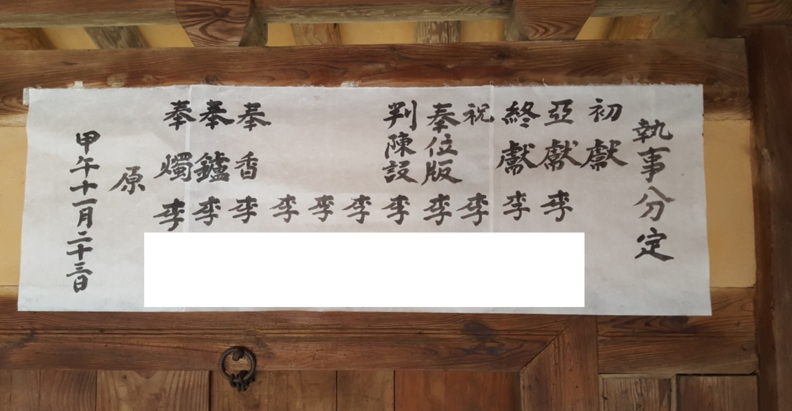 執事分定
初獻
亞獻 李
終獻 李
祝 李
奉位版 李
判陳設 李
李
李
李
奉香 李
奉鑪 李
奉燭 李
原
甲午十一月二十三日